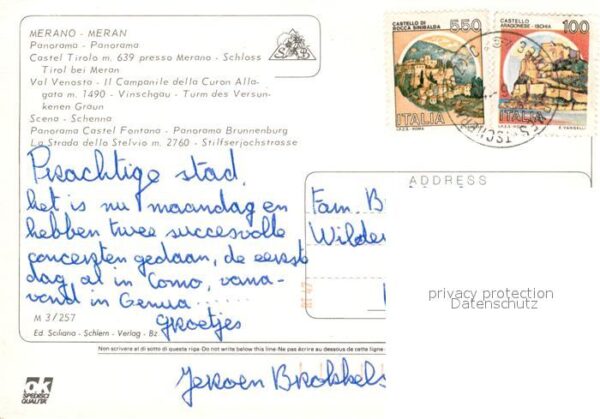 MERANO - MERAN
Panorama - Panorama
Castel Tirolo m. 639 presso Merano - Schloss
Tirol bei Meran
Val Venosta - Il Campanile della Curon Alla-
gata m. 1490 - Vinschgau - Turm des Versun-
kenen Graun
Scena - Schenna
Panorama Castel Fontana - Panorama Brunnenburg
La Strada dello Stelvio m. 2760 - Stilfserjochstrasse
CASTELLO DI
ROCCA SINIBALDA
550
ITALIA
I.P.Z.S. - ROMA
CASTELLO
ARAGONESE - ISCHIA
100
ITALIA
I.P.Z.S. - ROMA
E. VANGELLI
Prachtige stad,
het is nu maandag en
hebben twee succesvolle
concerten gedaan, de eerste
dag al in Como, vana-
vond in Genua......
Groetjes
Jeroen
ADDRESS
Fam. B
Wilder
privacy protection
Datenschutz
M 3/257
Ed. Sciliano - Schlern - Verlag - Bz
Non scrivere al di sotto di questa riga - Do not write below this line - Ne pas écrire au dessous de cette ligne
ok
SPEDISCI
QUALITÀ